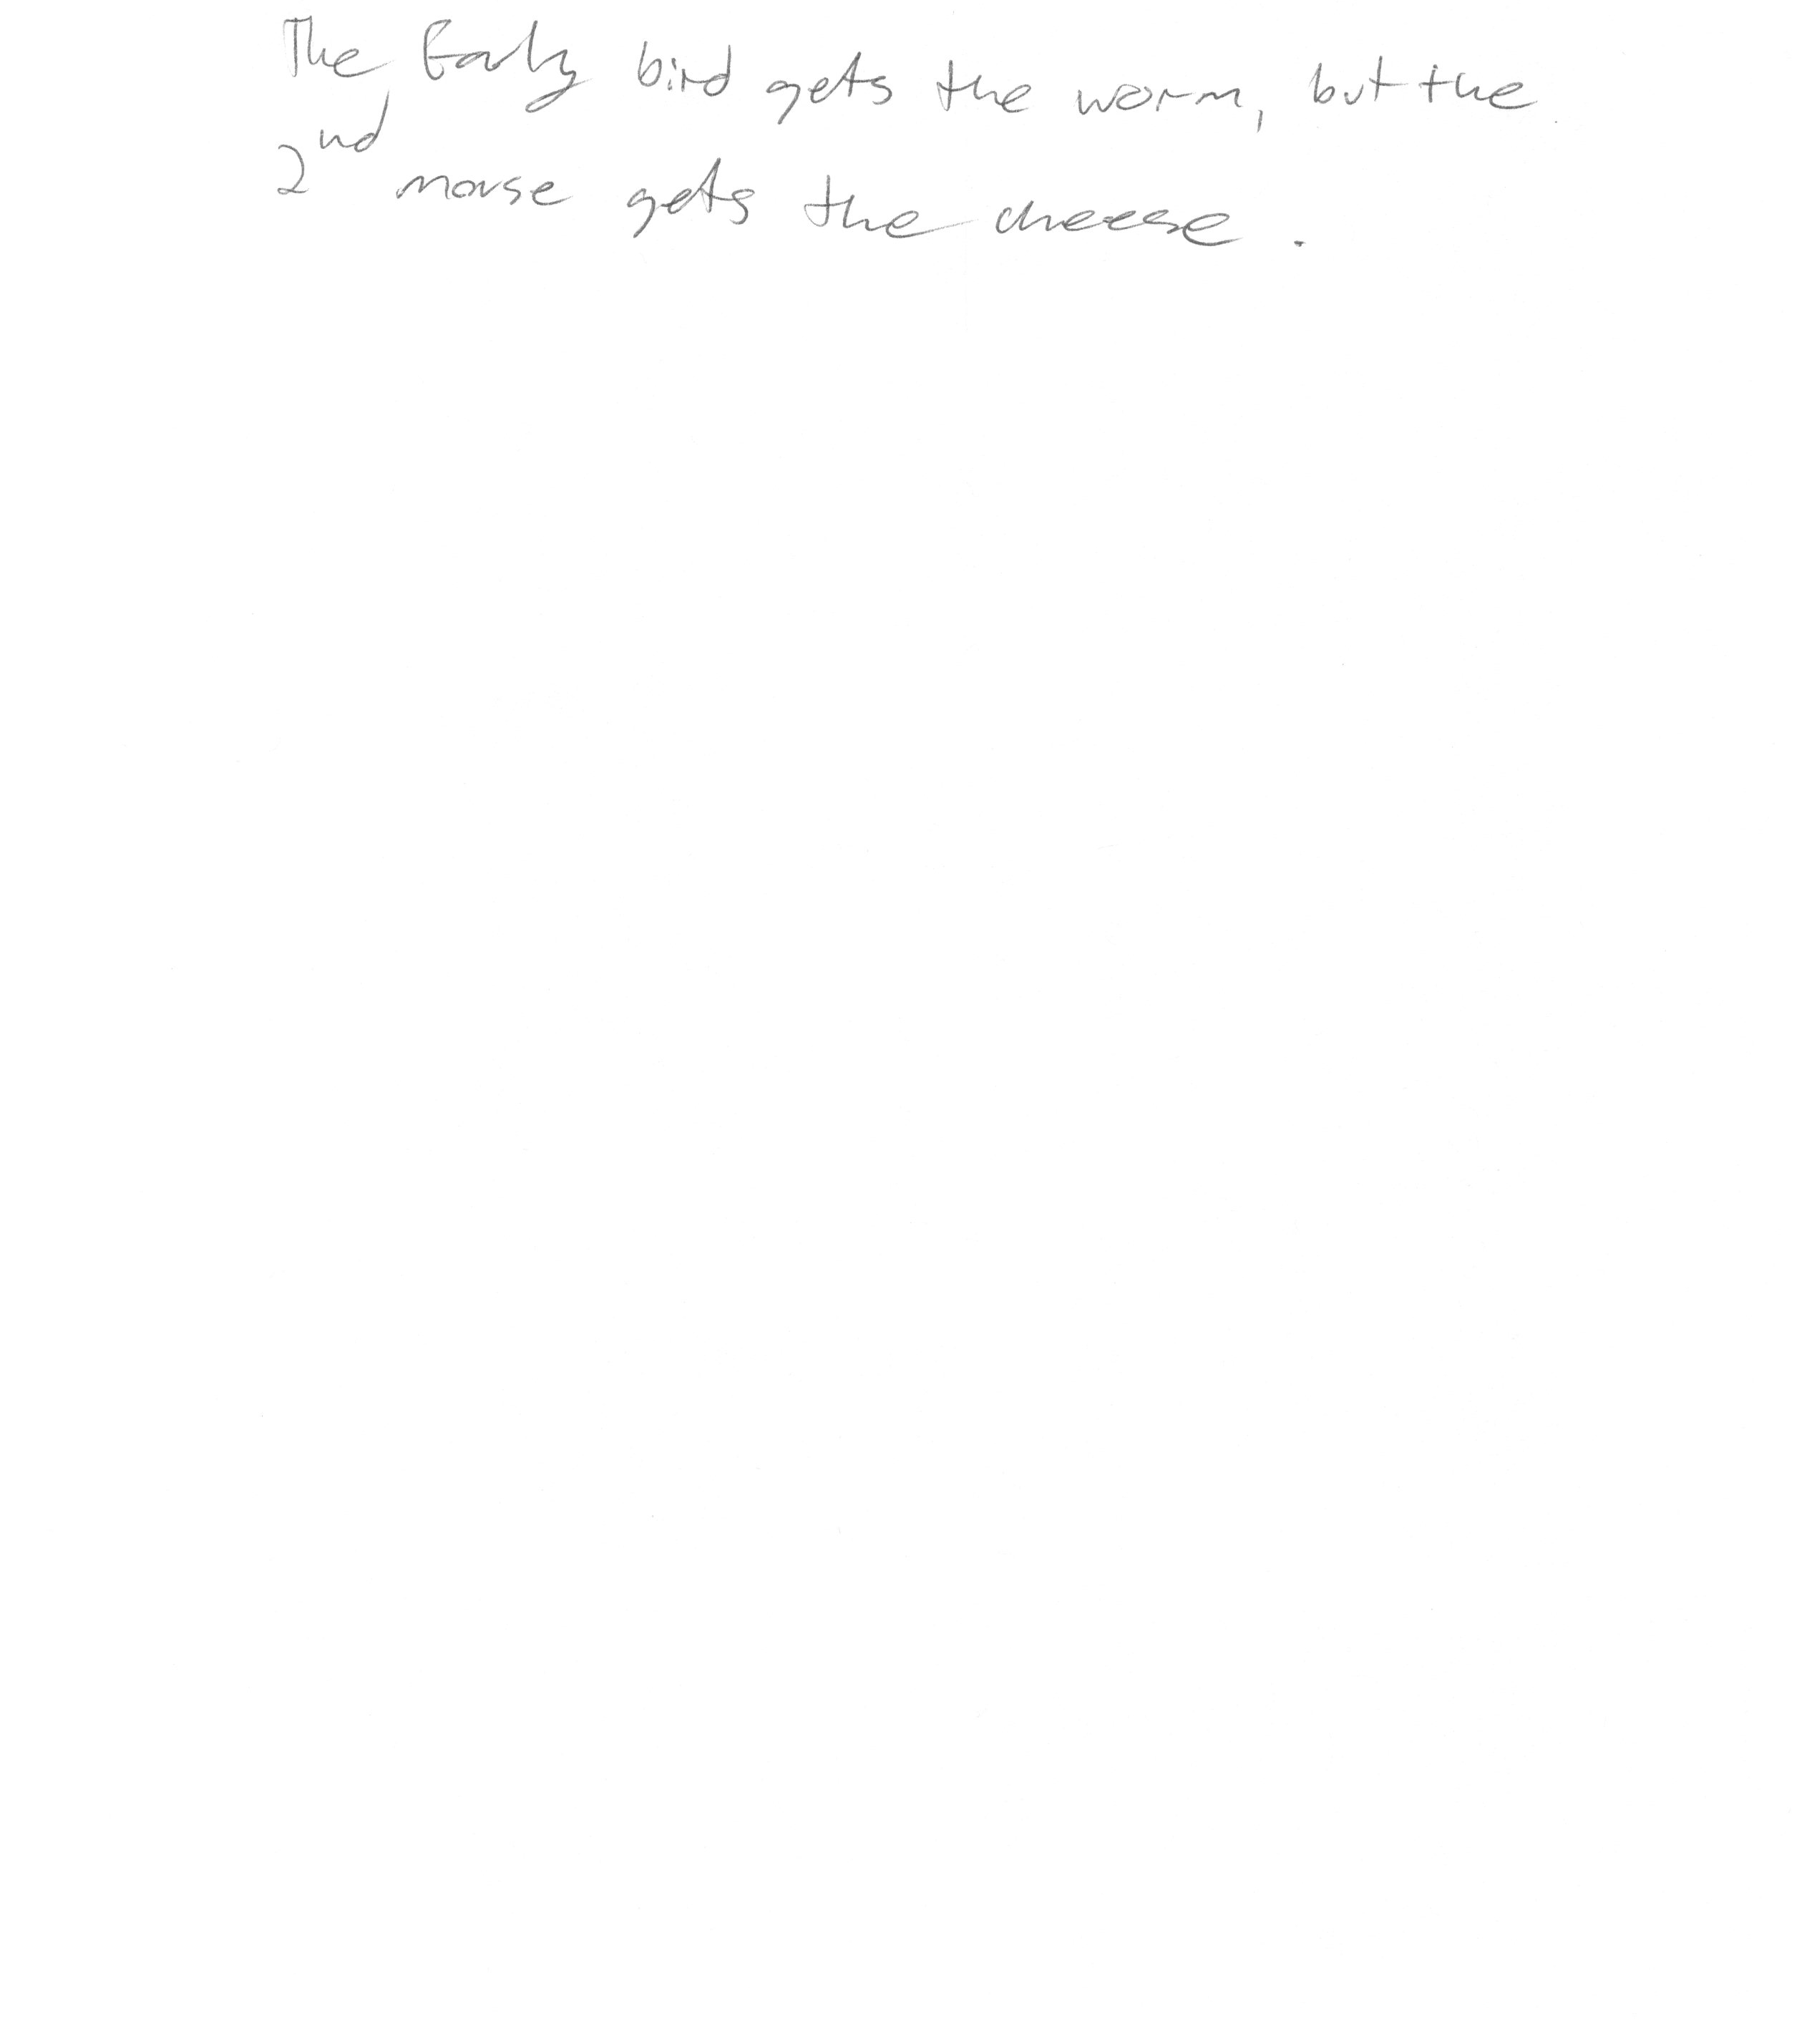 The Early bird gets the worm, but the
2nd mouse gets the cheese.